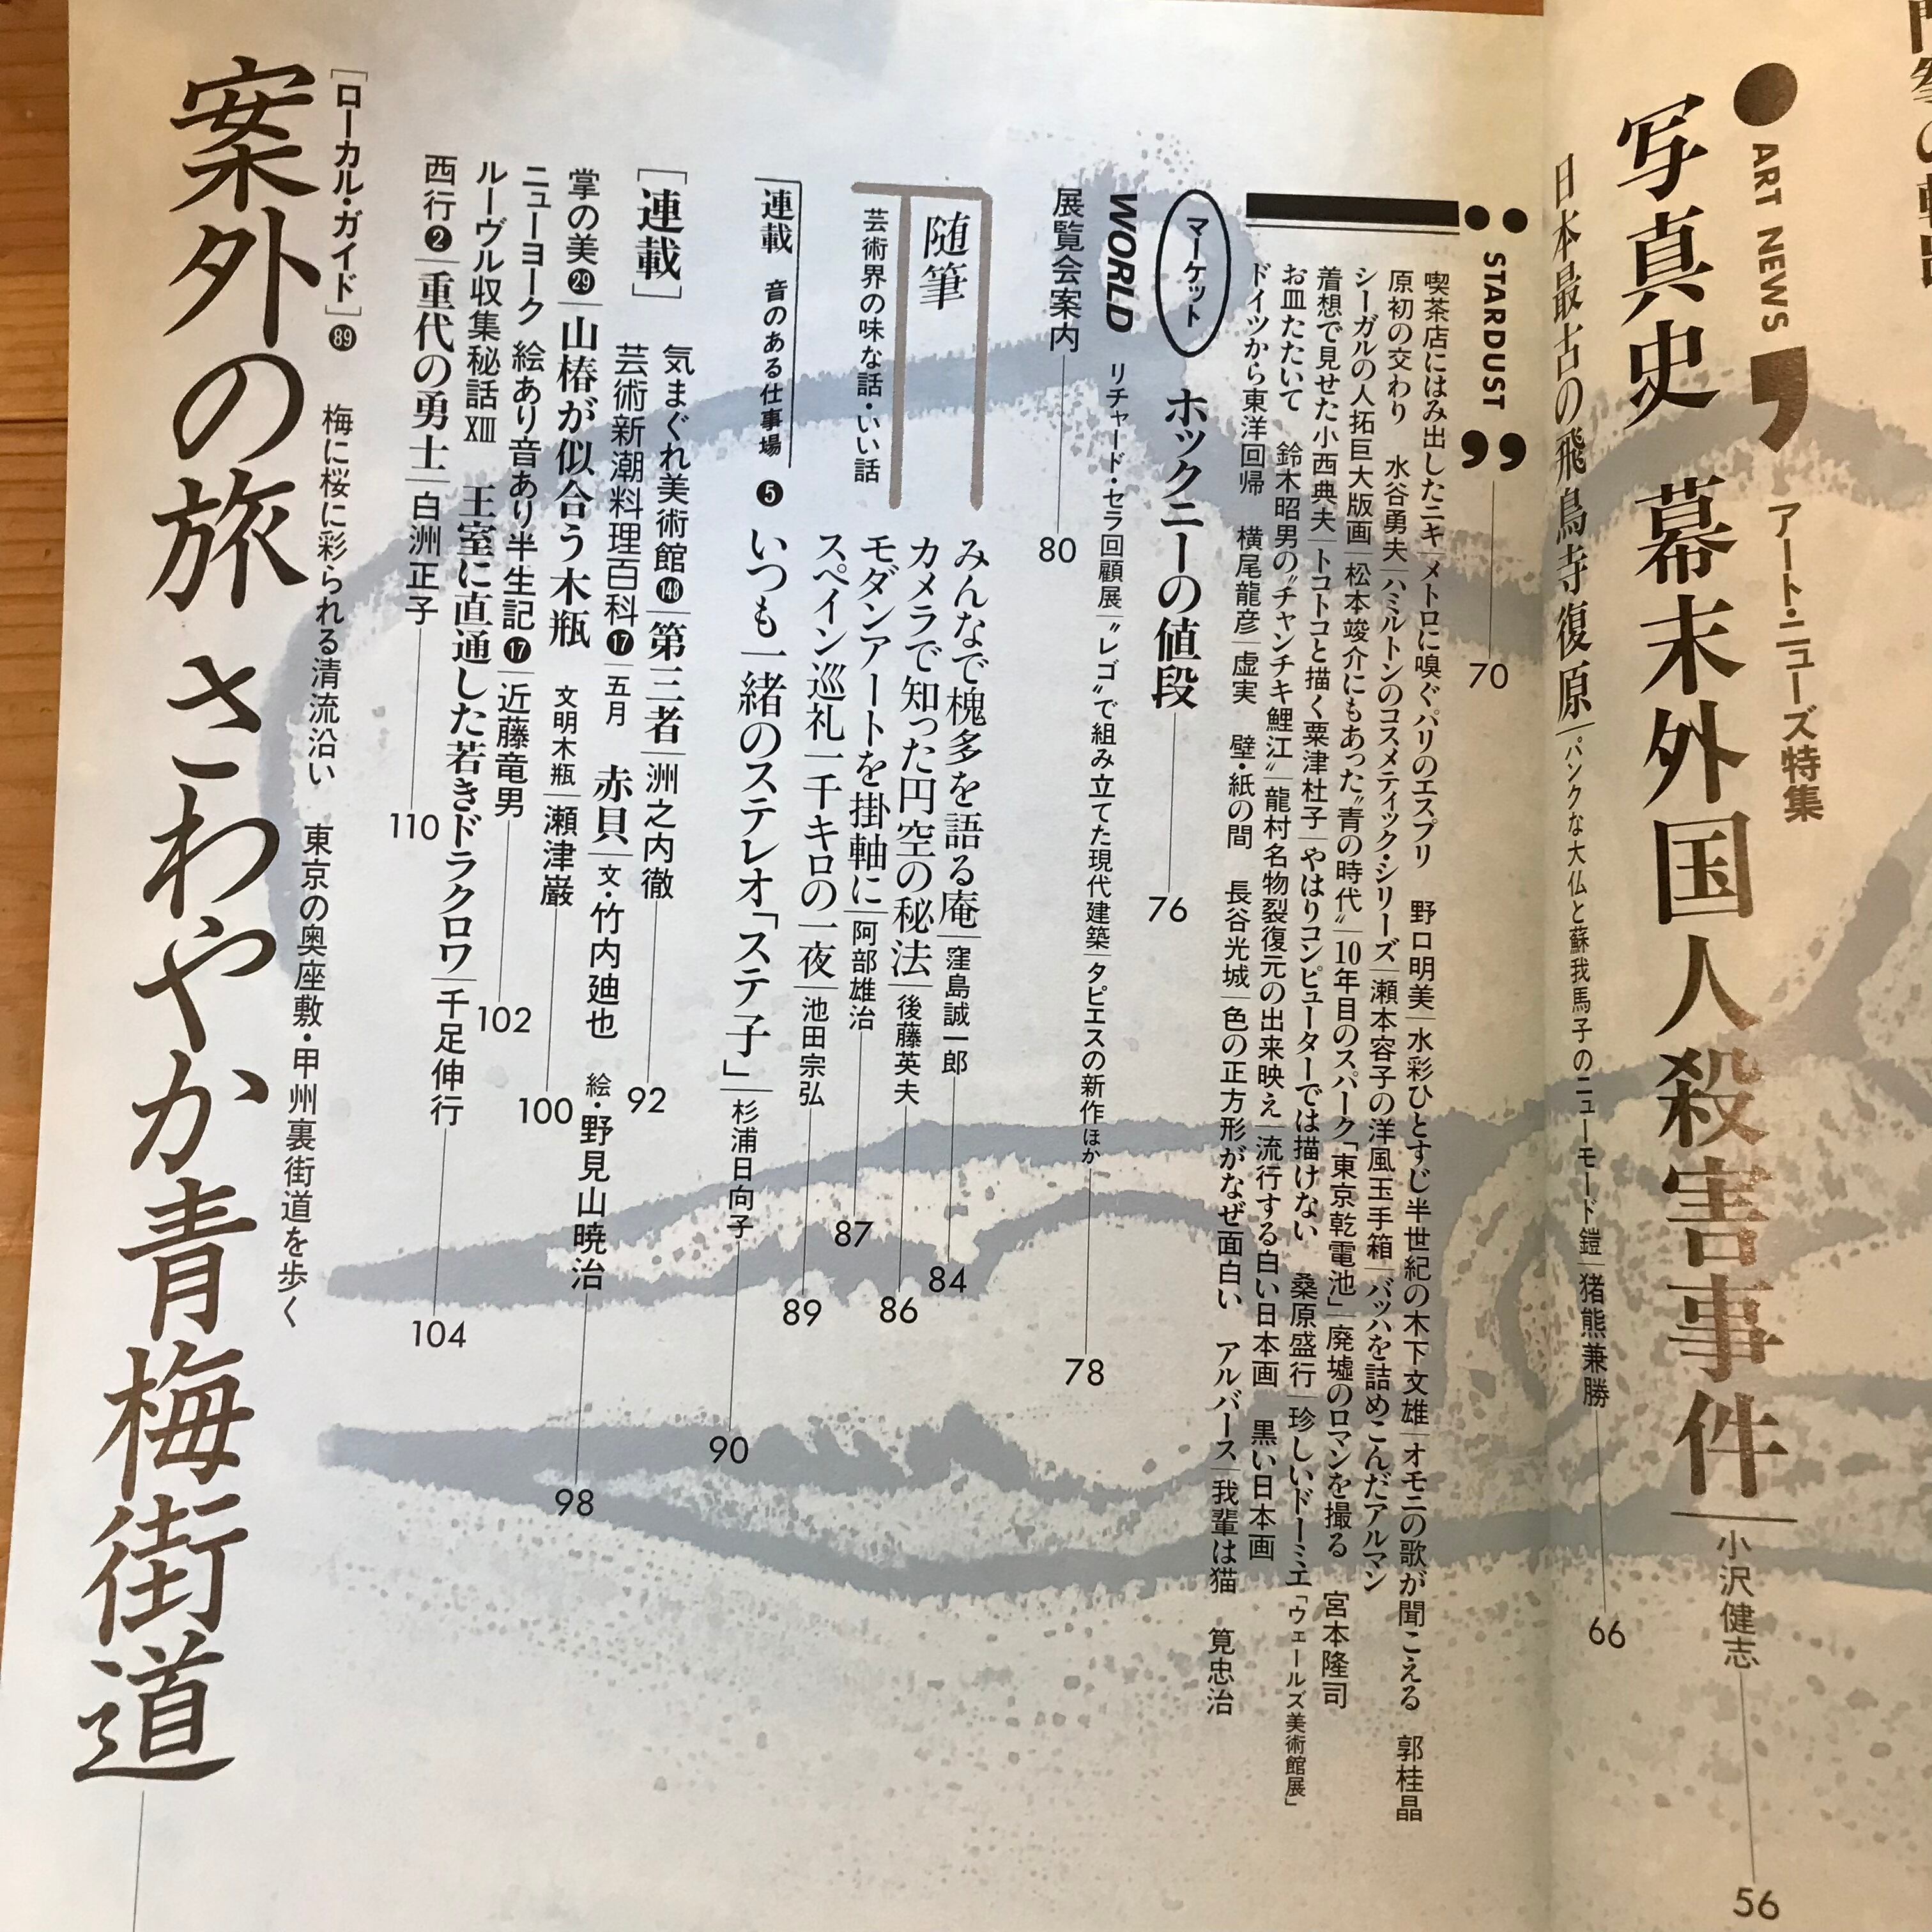 ART NEWS
アート・ニューズ特集
写真史 幕末外国人殺害事件 小沢健志 56
日本最古の飛鳥寺復原 パンクな大仏と蘇我馬子のニューモード鎧 猪熊兼勝 66
STARDUST 70
喫茶店にはみ出したニキ メトロに嗅ぐパリのエスプリ 野口明美 水彩ひとすじ半世紀の木下文雄 オモニの歌が聞こえる 郭桂晶
原初の交わり 水谷勇夫 ハミルトンのコスメティック・シリーズ 瀬本容子の洋風玉手箱 バッハを詰めこんだアルマン
シーガルの人拓巨大版画 松本竣介にもあった〝青の時代〟 10年目のスパーク「東京乾電池」 廃墟のロマンを撮る 宮本隆司
着想で見せた小西典夫 トコトコと描く粟津杜子 やはりコンピューターでは描けない 桑原盛行 珍しいドーミエ「ウェールズ美術館展」
お皿たたいて 鈴木昭男の〝チャンチキ鯉江〟 龍村名物裂復元の出来映え 流行する白い日本画 黒い日本画
ドイツから東洋回帰 横尾龍彦 虚実 壁・紙の間 長谷光城 色の正方形がなぜ面白い アルバース 我輩は猫 筧忠治
マーケット ホックニーの値段 76
WORLD リチャード・セラ回顧展 〝レゴ〟で組み立てた現代建築 タピエスの新作ほか 78
展覧会案内 80
随筆
芸術界の味な話・いい話
みんなで槐多を語る庵 窪島誠一郎 84
カメラで知った円空の秘法 後藤英夫 86
モダンアートを掛軸に 阿部雄治 87
スペイン巡礼一千キロの一夜 池田宗弘 89
連載 音のある仕事場 ❺ いつも一緒のステレオ「ステ子」 杉浦日向子 90
[連載]
気まぐれ美術館 148 第三者 洲之内徹 92
芸術新潮料理百科 ⓱ 五月 赤貝 文・竹内廸也 絵・野見山暁治 98
掌の美 29 山椿が似合う木瓶 文明木瓶 瀬津巌 100
ニューヨーク 絵あり音あり半生記 ⓱ 近藤竜男 102
ルーヴル収集秘話XIII 王室に直通した若きドラクロワ 千足伸行 104
西行❷ 重代の勇士 白洲正子 110
[ローカル・ガイド]89 梅に桜に彩られる清流沿い 東京の奥座敷・甲州裏街道を歩く
案外の旅 さわやか青梅街道